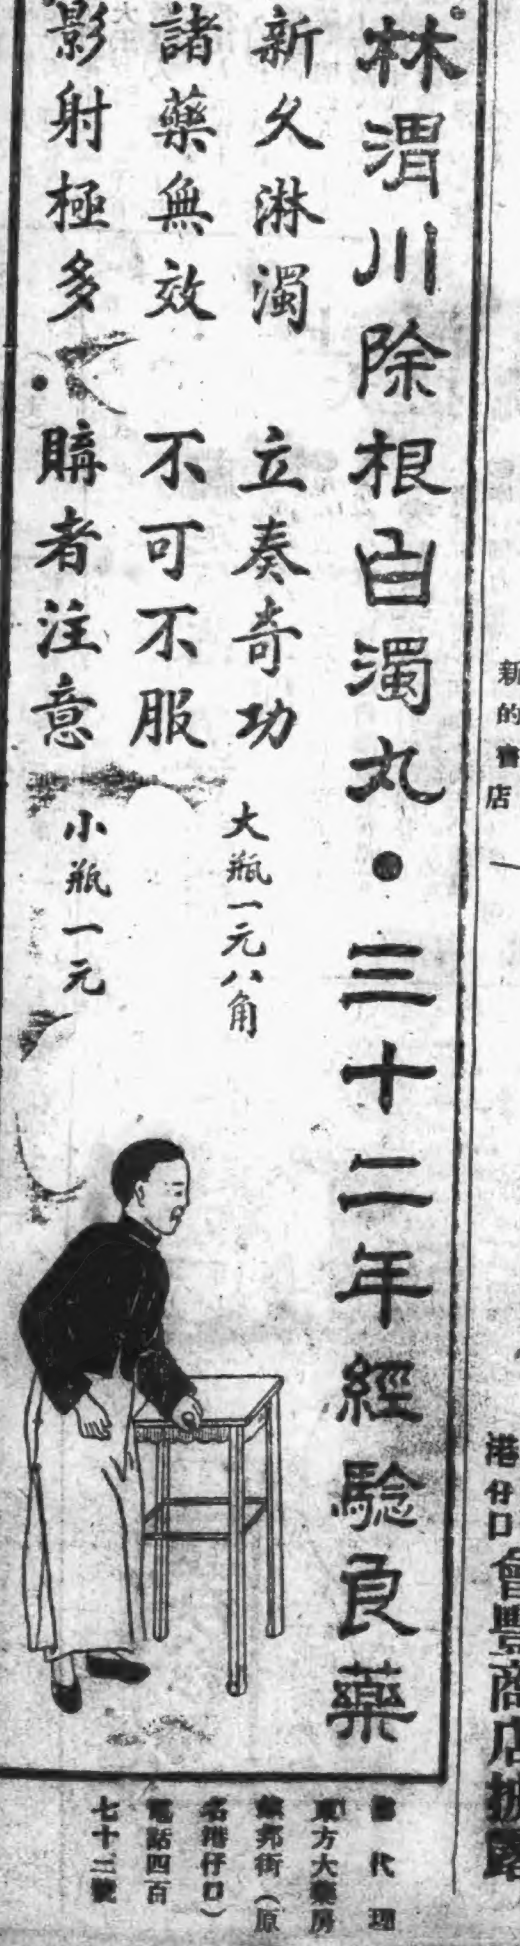 林渭川除根白濁丸•三十二年經驗良藥
新久淋濁　立奏奇功
諸藥無效　不可不服
影射極多•購者注意
大瓶一元八角
小瓶一元
代理
東方大藥房
邦街（原
名港仔口）
電話四百
七十二號
新的書店
港仔口會豐商店披露